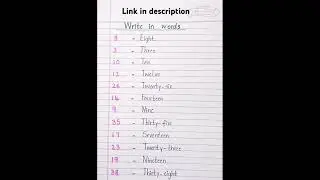 Link in description
Write in words
8 - Eight
3 - Three
10 - Ten
12 - Twelve
26 - Twenty-six
14 - Fourteen
9 - Nine
35 - Thirty-five
17 - Seventeen
23 - Twenty-three
19 - Nineteen
38 - Thirty-eight